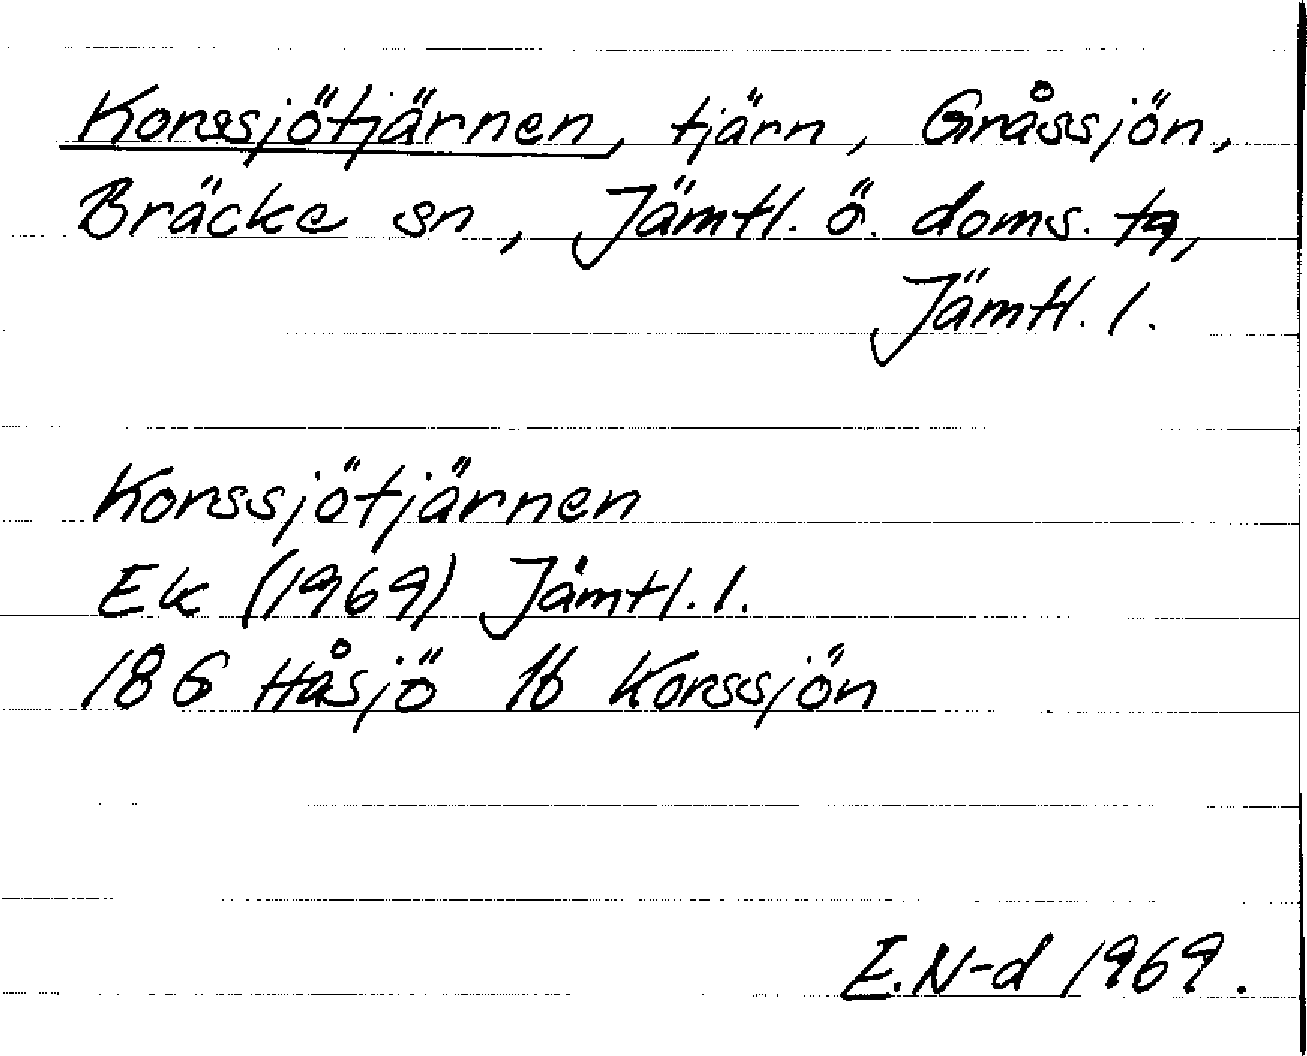 Korssjötjärnen, tjärn, Gråssjön,
Bräcke sn, Jämtl. ö. doms. tg,
Jämtl. l.
Korssjötjärnen
Ek (1969) Jämtl. l.
18G Håsjö 1b Korssjön
E.N-d 1969.